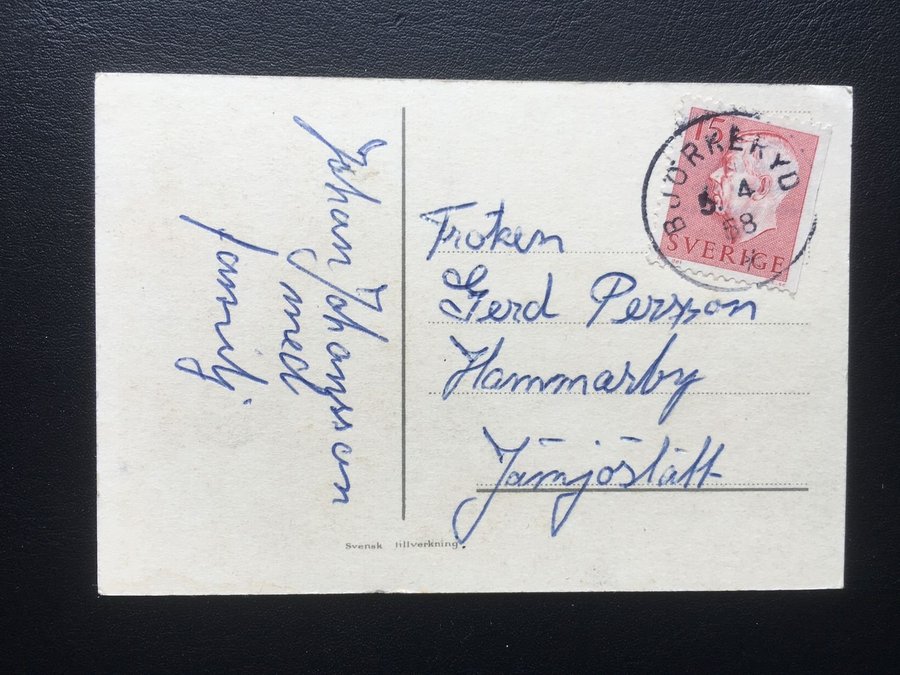 Johan Johansson
med
familj
15
SVERIGE
BJÖRKERYD
5. 4
58
Fröken
Gerd Persson
Hammarby
Jämjöslätt
Svensk tillverkning.